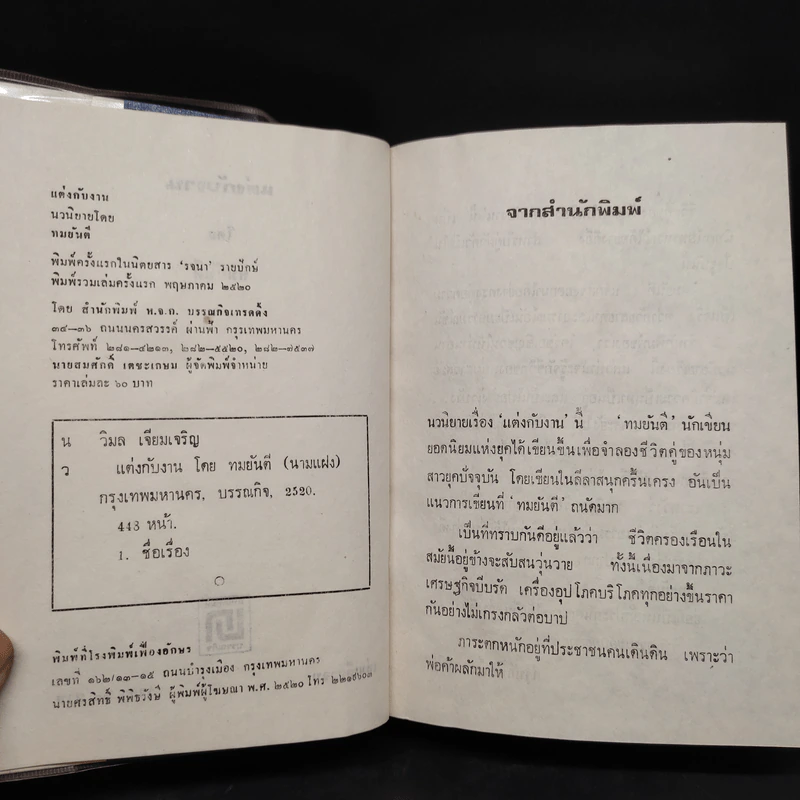 แต่งกับงาน
นวนิยายโดย
ทมยันตี
พิมพ์ครั้งแรกในนิตยสาร ‘รจนา’ รายปักษ์
พิมพ์รวมเล่มครั้งแรก พฤษภาคม ๒๕๒๐
โดย สำนักพิมพ์ ห.จ.ก. บรรณกิจเทรดดิ้ง
๓๔-๓๖ ถนนนครสวรรค์ ผ่านฟ้า กรุงเทพมหานคร
โทรศัพท์ ๒๘๑-๔๒๑๓, ๒๘๒-๕๕๒๐, ๒๘๒-๗๕๓๗
นายสมศักดิ์ เตชะเกษม ผู้จัดพิมพ์จำหน่าย
ราคาเล่มละ ๖๐ บาท
น วิมล เจียมเจริญ
ว แต่งกับงาน โดย ทมยันตี (นามแฝง)
กรุงเทพมหานคร, บรรณกิจ, 2520.
443 หน้า.
1. ชื่อเรื่อง
พิมพ์ที่โรงพิมพ์เฟื่องอักษร
เลขที่ ๑๖๒/๑๓-๑๕ ถนนบำรุงเมือง กรุงเทพมหานคร
นายศรสิทธิ์ พิพิธรังษี ผู้พิมพ์ผู้โฆษณา พ.ศ. ๒๕๒๐ โทร ๒๒๑๙๖๐๓
จากสำนักพิมพ์
นวนิยายเรื่อง ‘แต่งกับงาน’ นี้ ‘ทมยันตี’ นักเขียน
ยอดนิยมแห่งยุคได้เขียนขึ้นเพื่อจำลองชีวิตคู่ของหนุ่ม
สาวยุคปัจจุบัน โดยเขียนในลีลาสนุกครื้นเครง อันเป็น
แนวการเขียนที่ ‘ทมยันตี’ ถนัดมาก
เป็นที่ทราบกันดีอยู่แล้วว่า ชีวิตครองเรือนใน
สมัยนี้อยู่ข้างจะสับสนวุ่นวาย ทั้งนี้เนื่องมาจากภาวะ
เศรษฐกิจบีบรัด เครื่องอุปโภคบริโภคทุกอย่างขึ้นราคา
กันอย่างไม่เกรงกลัวต่อบาป
ภาระตกหนักอยู่ที่ประชาชนคนเดินดิน เพราะว่า
พ่อค้าผลักมาให้